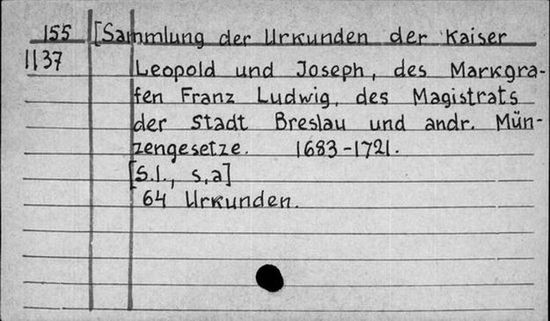 155 [Sammlung der Urkunden der Kaiser
1137 Leopold und Joseph, des Markgra-
fen Franz Ludwig, des Magistrats
der Stadt Breslau und andr. Mün-
zengesetze. 1683-1721.
[S.l., s,a]
64 Urkunden.